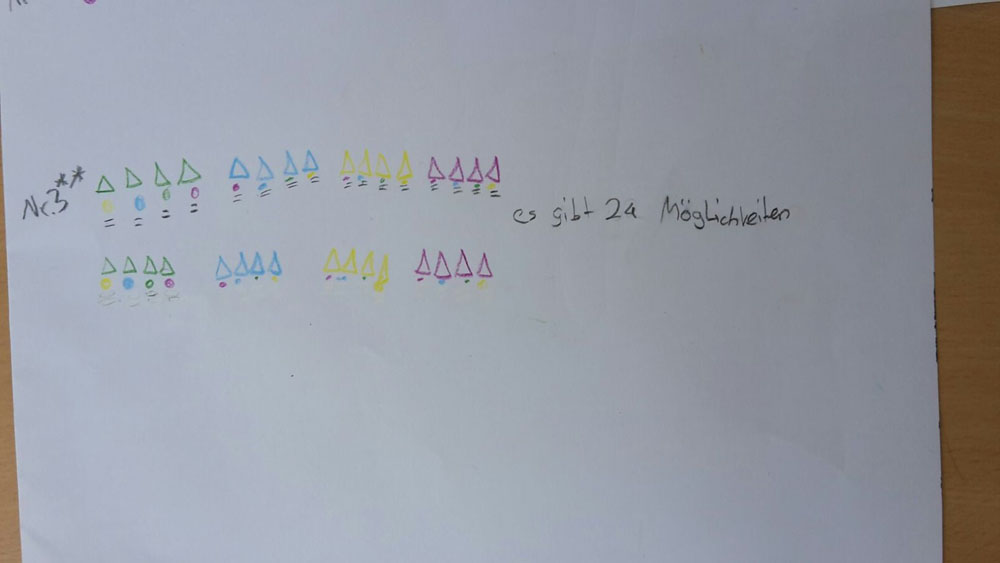 Nr.3**
es gibt 24 Möglichkeiten